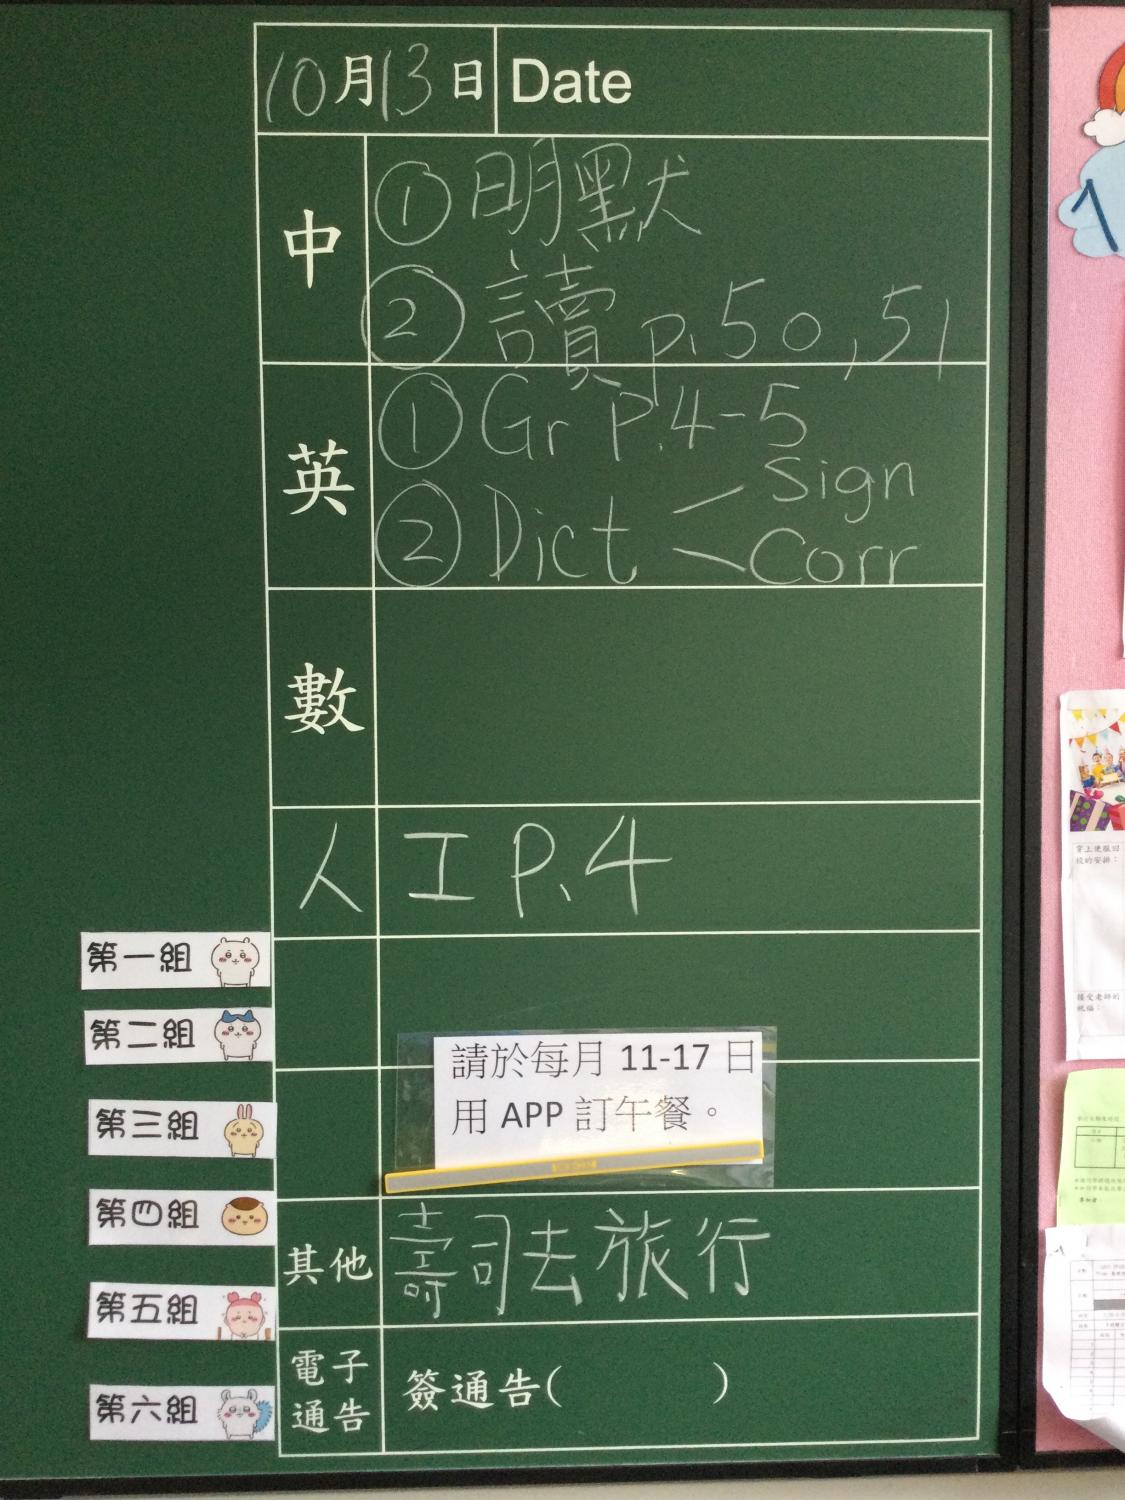 10月13日 Date
中
① 明默
② 讀 p.50,51
英
① Gr P.4-5
② Dict < Sign
Corr
數
人 工 P.4
第一組
第二組
第三組
第四組
第五組
第六組
請於每月 11-17 日
用 APP 訂午餐。
其他 壽司去旅行
電子
通告
簽通告( )
1
穿上便服回
校的安排：
接受老師的
祝福：